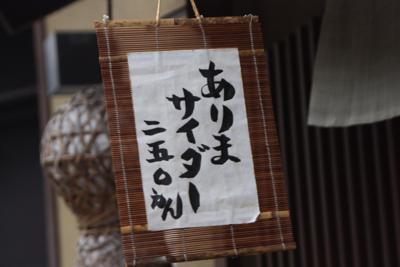 ありま
サイダー
二五〇えん